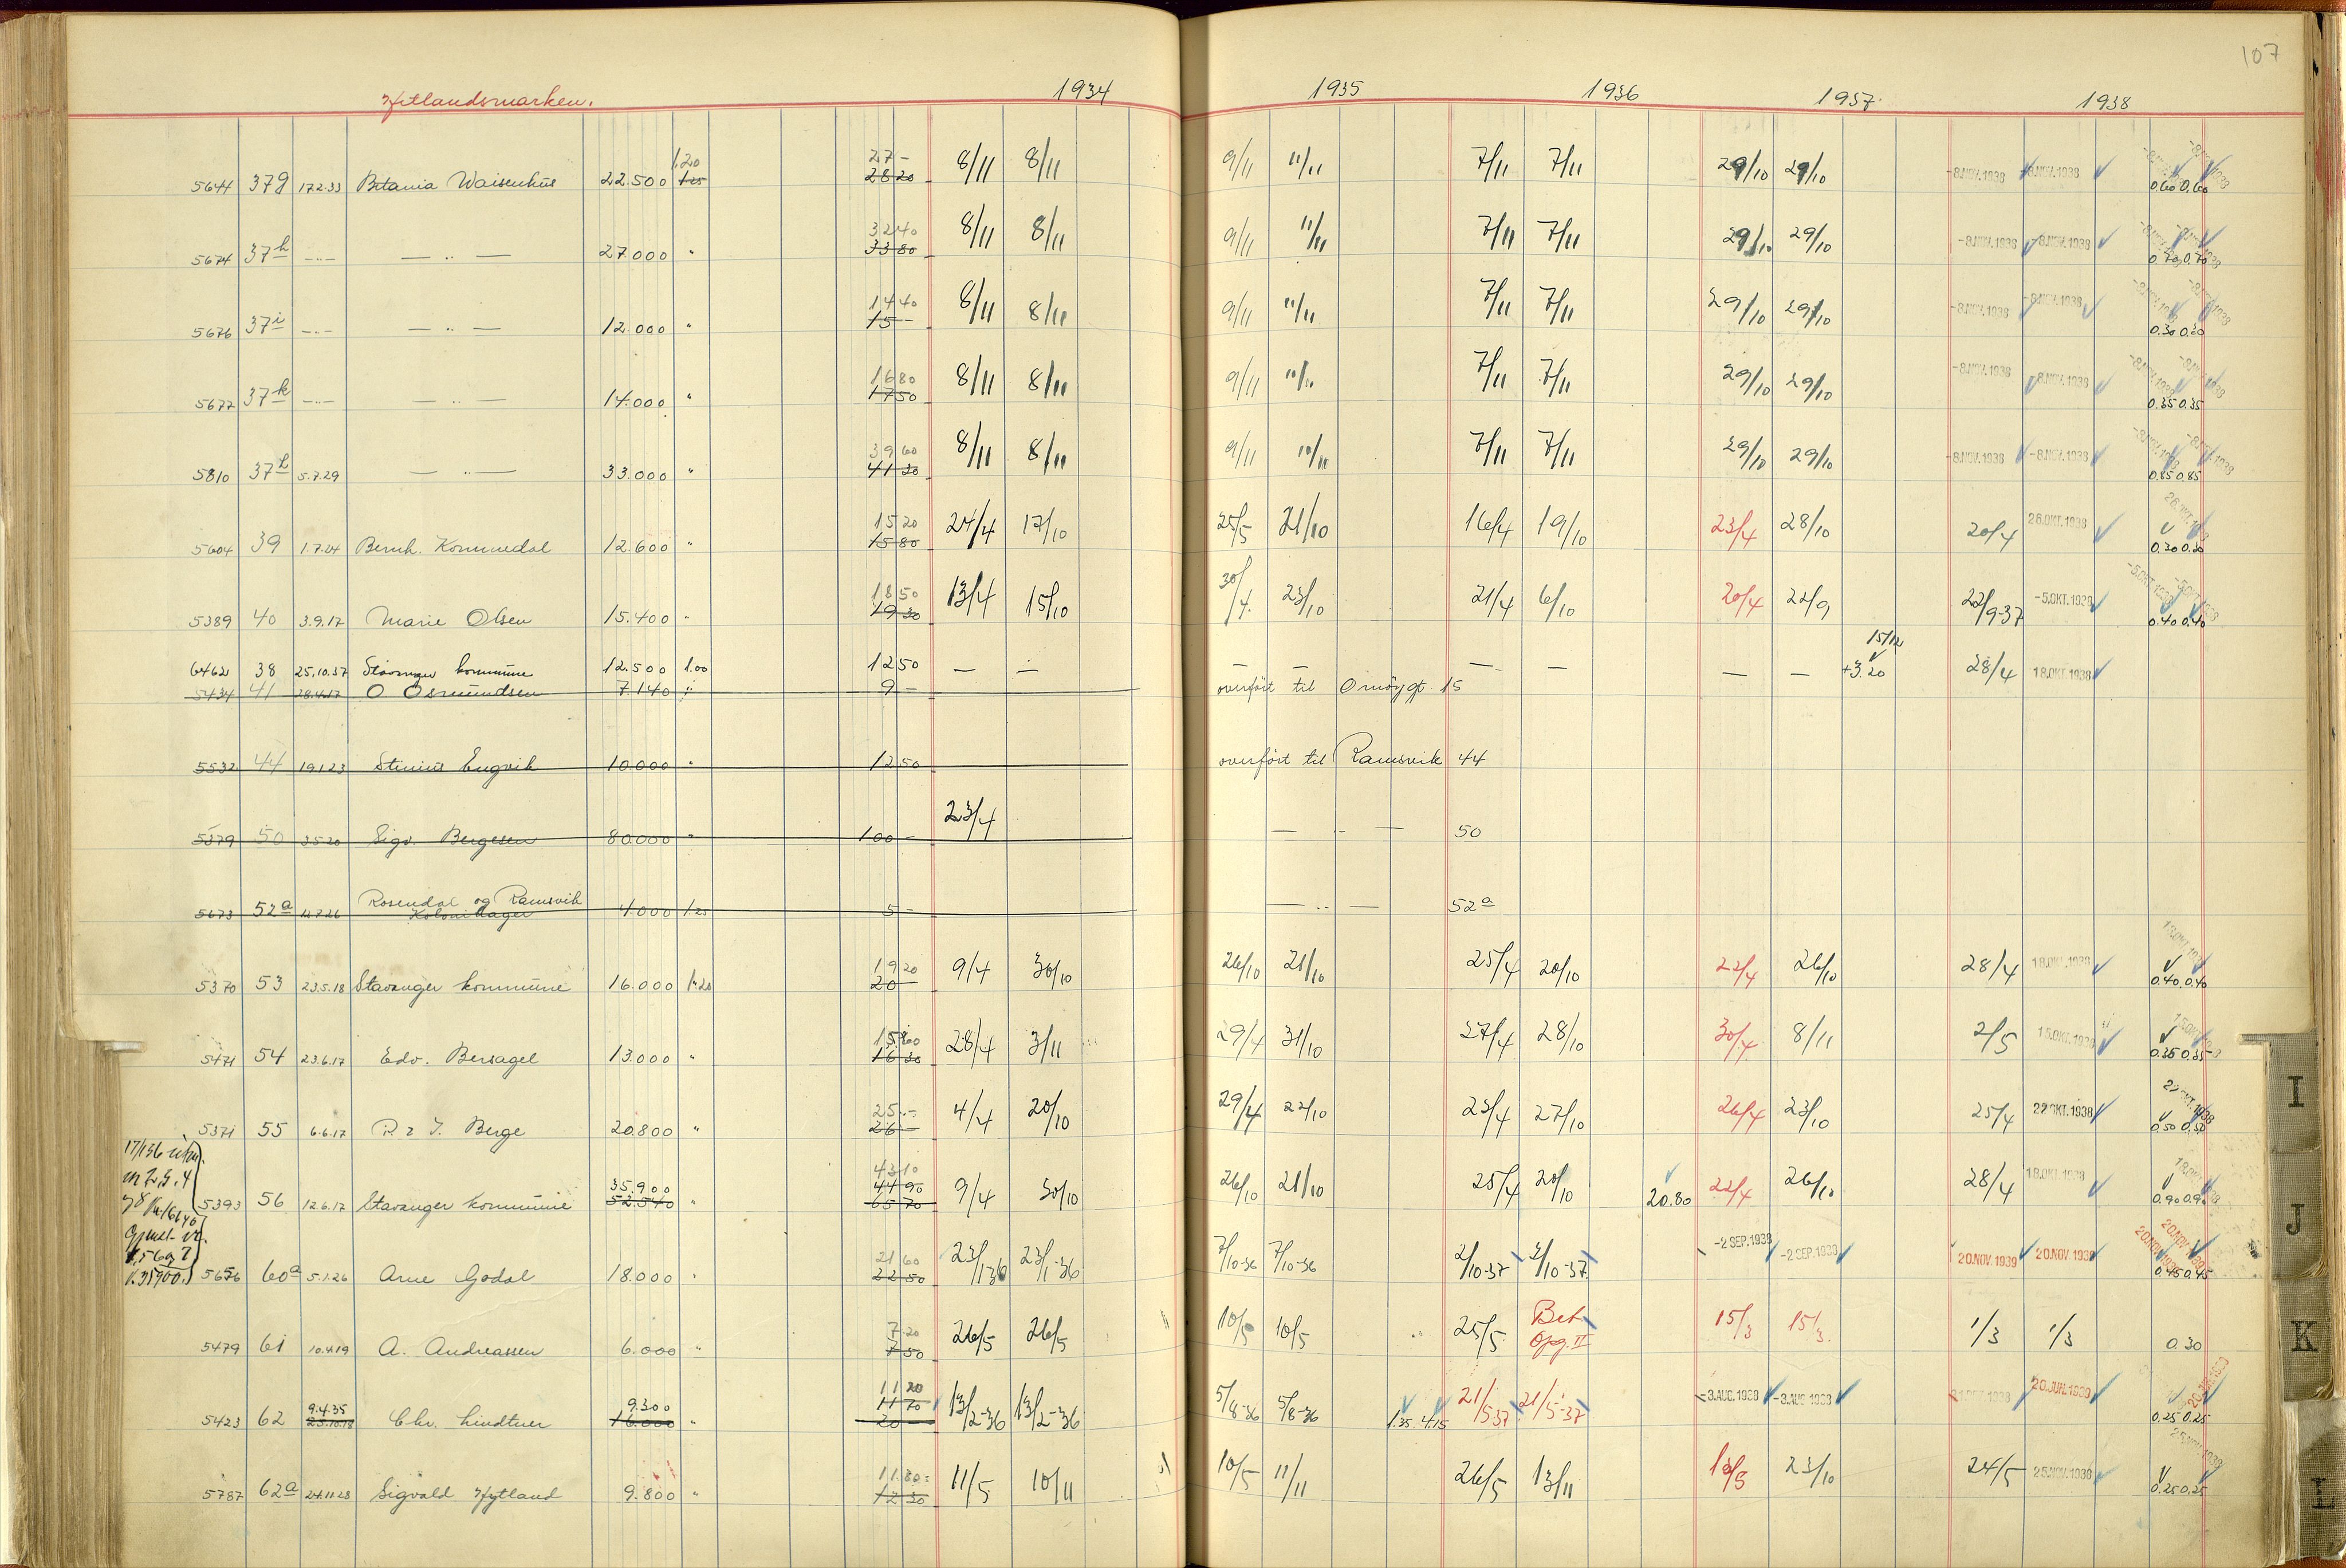 107
Hetlandsmarken. 1934 1935 1936 1937 1938
5644 37g 17.2.33 Betania Waisenhus 22.500 1.20 1.25 27 - 28 20 8/11 8/11 9/11 11/11 7/11 7/11 29/10 29/10 -8.NOV.1938 -8.NOV.1938 0.60 0.60
5674 37h -"- — " — 27.000 " 32 40 33 80 8/11 8/11 9/11 11/11 7/11 7/11 29/10 29/10 -8.NOV.1938 -8.NOV.1938 0.70 0.70
5676 37i -"- — " — 12.000 " 14 40 15 - 8/11 8/11 9/11 11/11 7/11 7/11 29/10 29/10 -8.NOV.1938 -8.NOV.1938 0.30 0.30
5677 37k -"- — " — 14.000 " 16 80 17 50 8/11 8/11 9/11 11/11 7/11 7/11 29/10 29/10 -8.NOV.1938 -8.NOV.1938 0.35 0.35
5810 37l 5.7.29 — " — 33.000 " 39 60 41 20 8/11 8/11 9/11 11/11 7/11 7/11 29/10 29/10 -8.NOV.1938 -8.NOV.1938 0.85 0.85
5604 39 1.7.24 Bernh. Kommedal 12.600 " 15 20 15 80 24/4 17/10 25/5 21/10 16/4 19/10 23/4 28/10 20/4 26.OKT.1938 0.30 0.30
5389 40 3.9.17 Marie Olsen 15.400 " 18 50 19 30 13/4 15/10 30/4. 23/10 21/4 6/10 20/4 22/9 22/9-37 -5.OKT.1938 0.40 0.40
6462 38 25.10.37 Stavanger kommune 12.500 1.00 12 50 — — — — — — — — 15/12 +3.20 28/4 18.OKT.1938
5434 41 28.4.17 O Osmundsen 7140 " 9 - overført til Omøygt. 15
5532 44 19.1.23 Stinius Engvik 10.000 " 12 50 overført til Ramsvik 44
5379 50 3.5.20 Sigv. Bergesen 80.000 " 100 - 23/4 — " — 50
5673 52a 12.7.26 Rosendal og Ramsvik Kolonihager 4.000 1.25 5 - — " — 52a
5370 53 23.5.18 Stavanger kommune 16.000 1.20 19 20 20 - 9/4 30/10 26/10 21/10 25/4 20/10 22/4 26/10 28/4 18.OKT.1938 0.40 0.40
5471 54 23.6.17 Edv. Bersagel 13.000 " 15 60 16 30 28/4 3/11 29/4 31/10 27/4 28/10 30/4 8/11 2/5 15.OKT.1938 0.35 0.35
5371 55 6.6.17 R & J. Berge 20.800 " 25 - 26 - 4/4 20/10 29/4 22/10 23/4 27/10 26/4 23/10 25/4 22.OKT.1938 0.50 0.50
5393 56 12.6.17 Stavanger kommune 35.900 52.540 " 43 10 44 90 65 70 9/4 30/10 26/10 21/10 25/4 20/10 20.80 22/4 26/10 28/4 18.OKT.1938 0.90 0.90
5656 60a 5.1.26 Arne Godal 18.000 " 21 60 22 50 23/1-36 23/1-36 7/10-36 7/10-36 2/10-37 2/10-37 -2 SEP.1938 -2 SEP.1938 20.NOV.1939 20.NOV.1939 0.45 0.45
5479 61 10.4.19 A. Andreassen 6.000 " 7 20 7 50 26/5 26/5 10/5 10/5 25/5 Bet. Opg. II 15/3 15/3. 1/3 1/3 0.30
5423 62 9.4.35 23.10.18 Chr. Lindtner 9.300 16.000 " 11 20 11 70 20 - 13/2-36 13/2-36 5/8-36 5/8-36 1.35 4.15 21/5-37 21/5-37 -3.AUG.1938 -3.AUG.1938 20.JUN.1939 0.25 0.25
5787 62a 24.11.28 Sigvald Hytland 9.800 " 11 80 12 30 11/5 10/11 10/5 11/11 26/5 13/11 13/5 23/10 24/5 25.NOV.1938 0.25 0.25
I
J
K
L